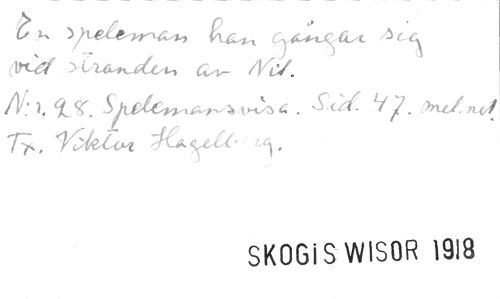 En speleman han gångar sig
vid stranden av Nil.
N:r. 28. Spelemansvisa. Sid. 47. mel. not.
Tx. Viktor Hagelberg.
SKOGIS WISOR 1918